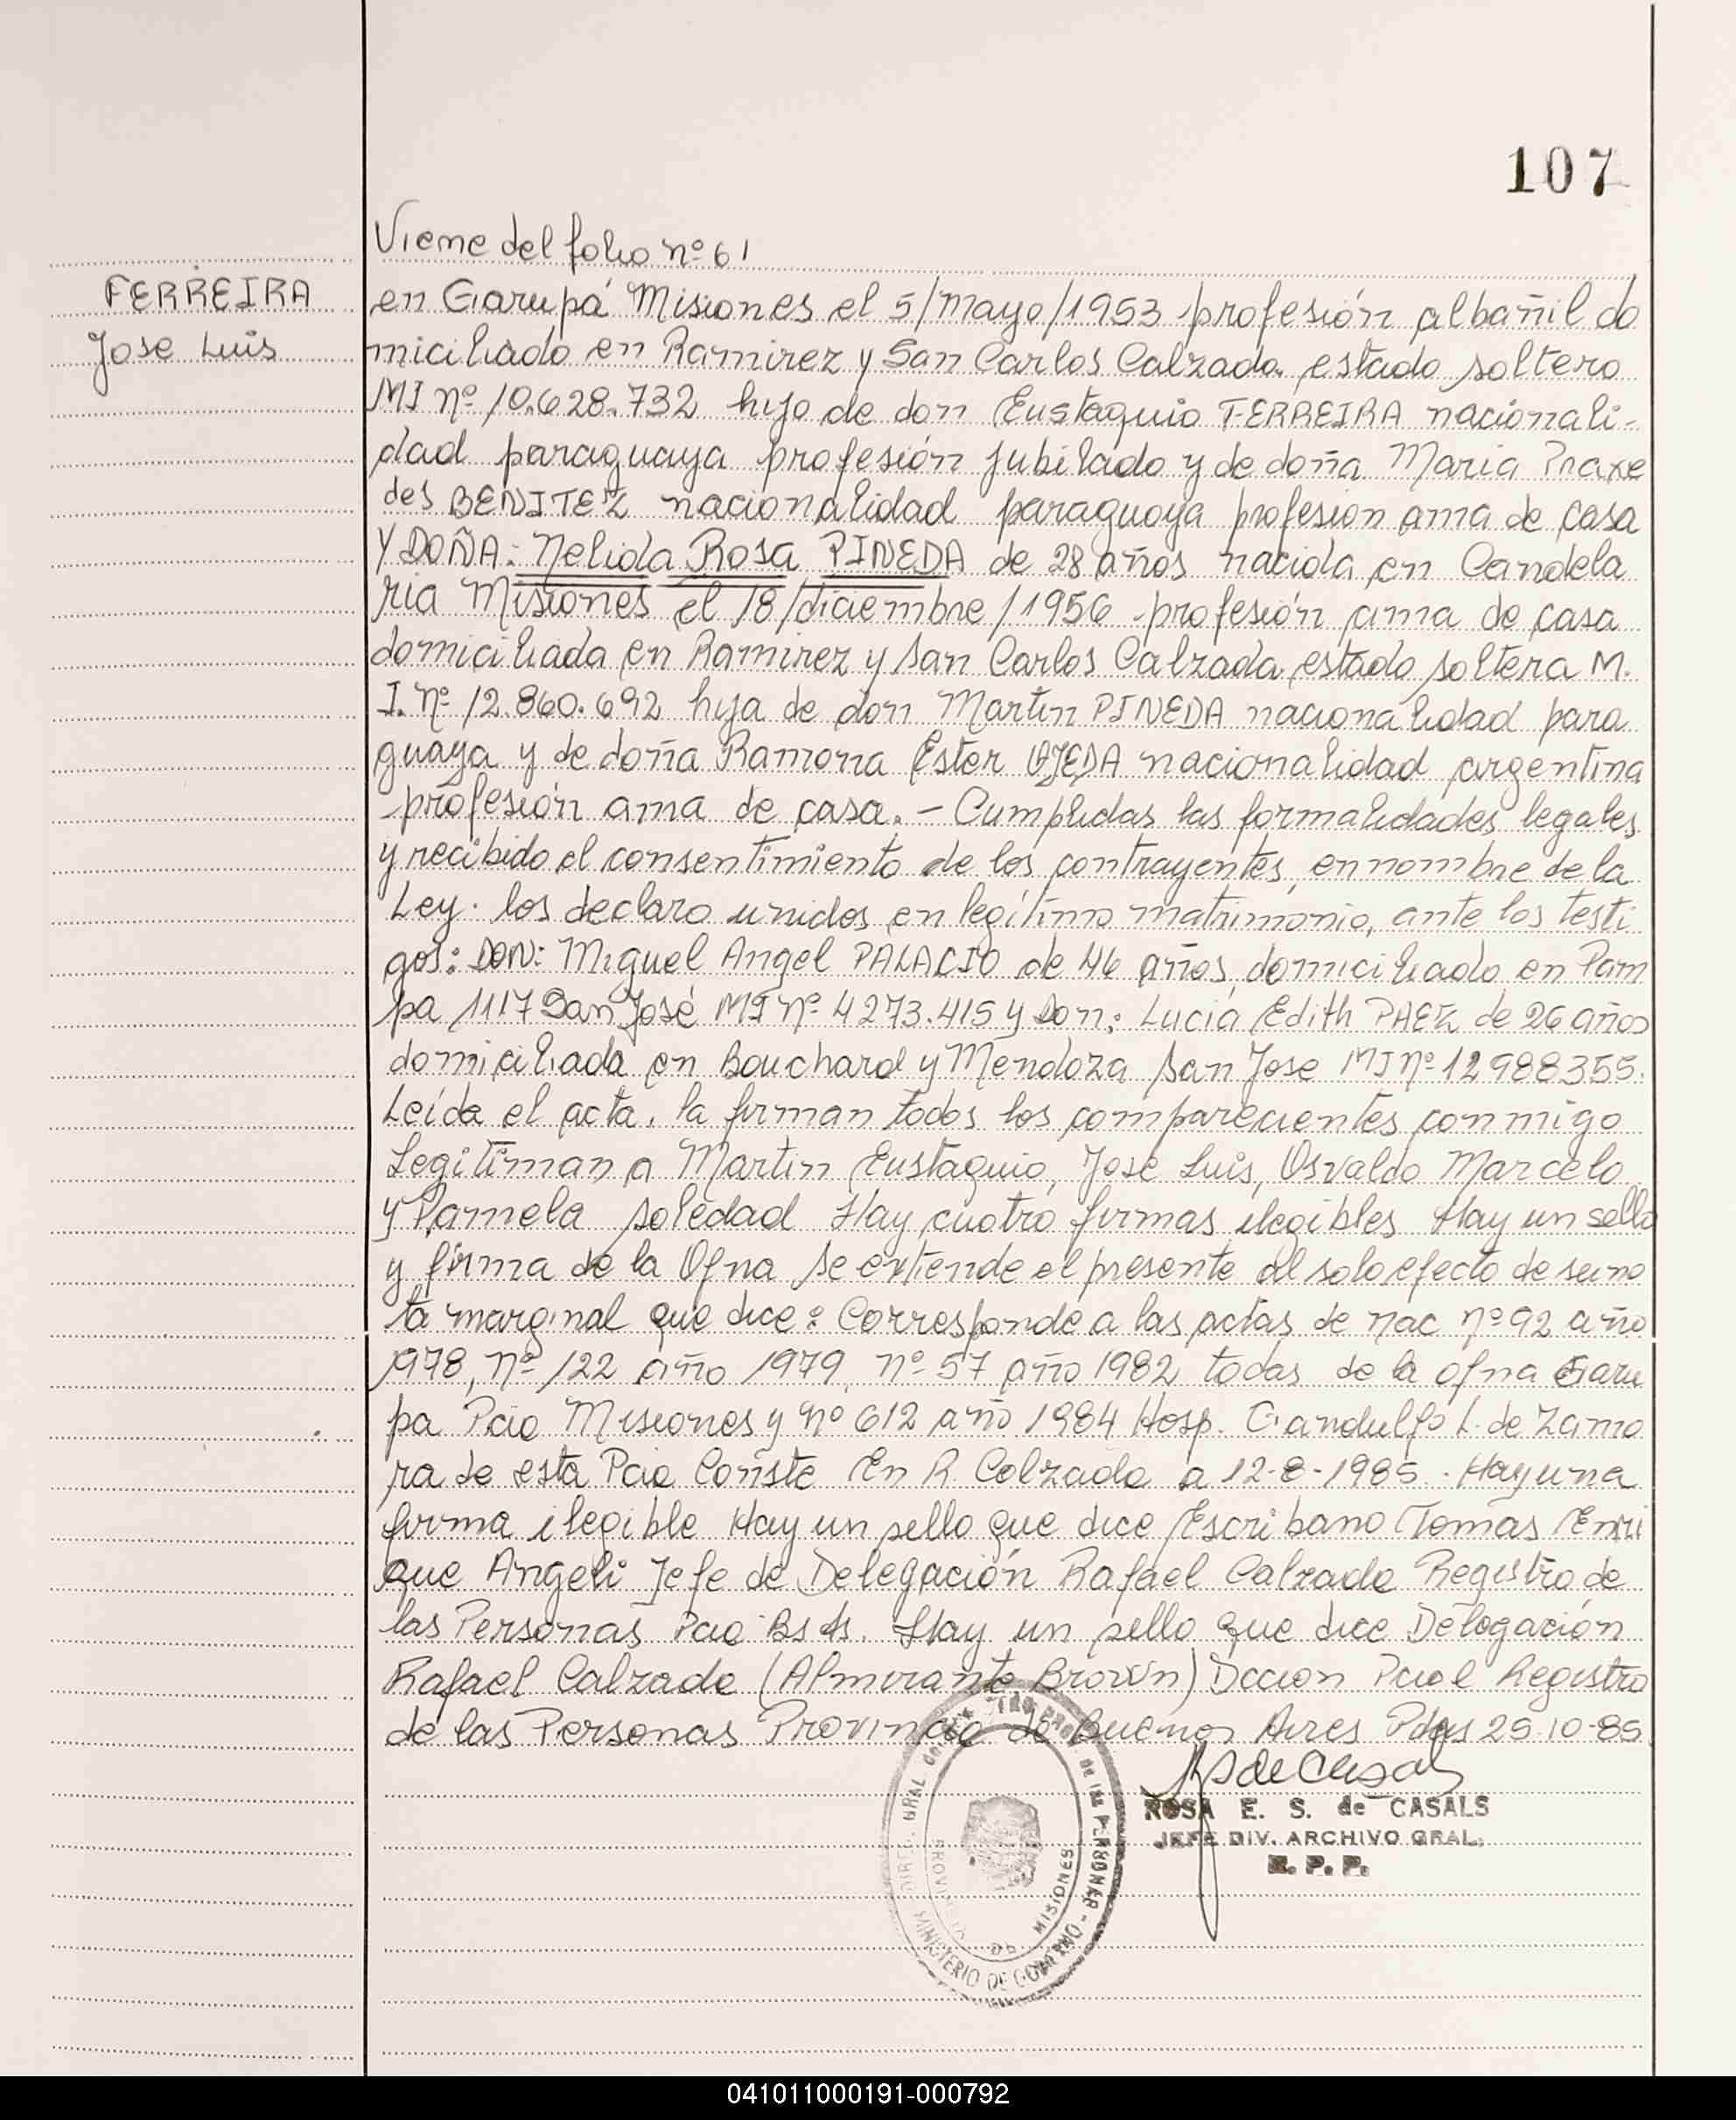 107
Viene del folio nº 61
FERREIRA
Jose Luis
en Garupá Misiones el 5/mayo/1953 profesión albañil do
miciliado en Ramirez y San Carlos Calzada estado soltero
MI nº 10.628.732 hijo de don Eustaquio FERREIRA nacionali-
dad paraguaya profesión jubilado y de doña Maria Praxe
des BENITEZ nacionalidad paraguaya profesion ama de casa
Y DOÑA: Nelida Rosa PINEDA de 28 años nacida en Candela
ria Misiones el 18/diciembre/1956 profesión ama de casa
domiciliada en Ramirez y San Carlos Calzada estado soltera M.
I. Nº 12.860.692 hija de don Martin PINEDA nacionalidad para
guaya y de doña Ramona Ester OJEDA nacionalidad argentina
profesión ama de casa. - Cumplidas las formalidades legales
y recibido el consentimiento de los contrayentes, en nombre de la
Ley. los declaro unidos en legítimo matrimonio, ante los testi
gos: DON: Miguel Angel PALACIO de 46 años domiciliado en Pam
pa 1117 San José MI nº 4273.415 y Don: Lucia Edith PAEZ de 26 años
domiciliada en Bouchard y Mendoza San Jose MI nº 12988355.
Leída el acta, la firman todos los comparecientes conmigo
Legitiman a Martin Eustaquio, José Luis, Osvaldo Marcelo
y Pamela Soledad Hay cuatro firmas ilegibles Hay un sello
y firma de la Ofna Se extiende el presente al solo efecto de su no
ta marginal que dice: Corresponde a las actas de nac nº 92 año
1978, nº 122 año 1979, nº 57 año 1982 todas de la ofna Garu
pa Pcia Misiones y nº 612 año 1984 Hosp. Gandulfo L. de Zamo
ra de esta Pcia Conste En R. Calzada a 12-8-1985. Hay una
firma ilegible Hay un sello que dice Escribano Tomas Enri
que Angeli Jefe de Delegación Rafael Calzada Registro de
las Personas Pcia Bs As. Hay un sello que dice Delegación
Rafael Calzada (Almirante Brown) Dccion Pcial Registro
de las Personas Provincia de Buenos Aires Pdas 25-10-85
ROSA E. S. de CASALS
JEFE DIV. ARCHIVO GRAL.
R. P. P.
MINISTERIO DE GOBIERNO
PROVINCIA DE MISIONES
041011000191-000792